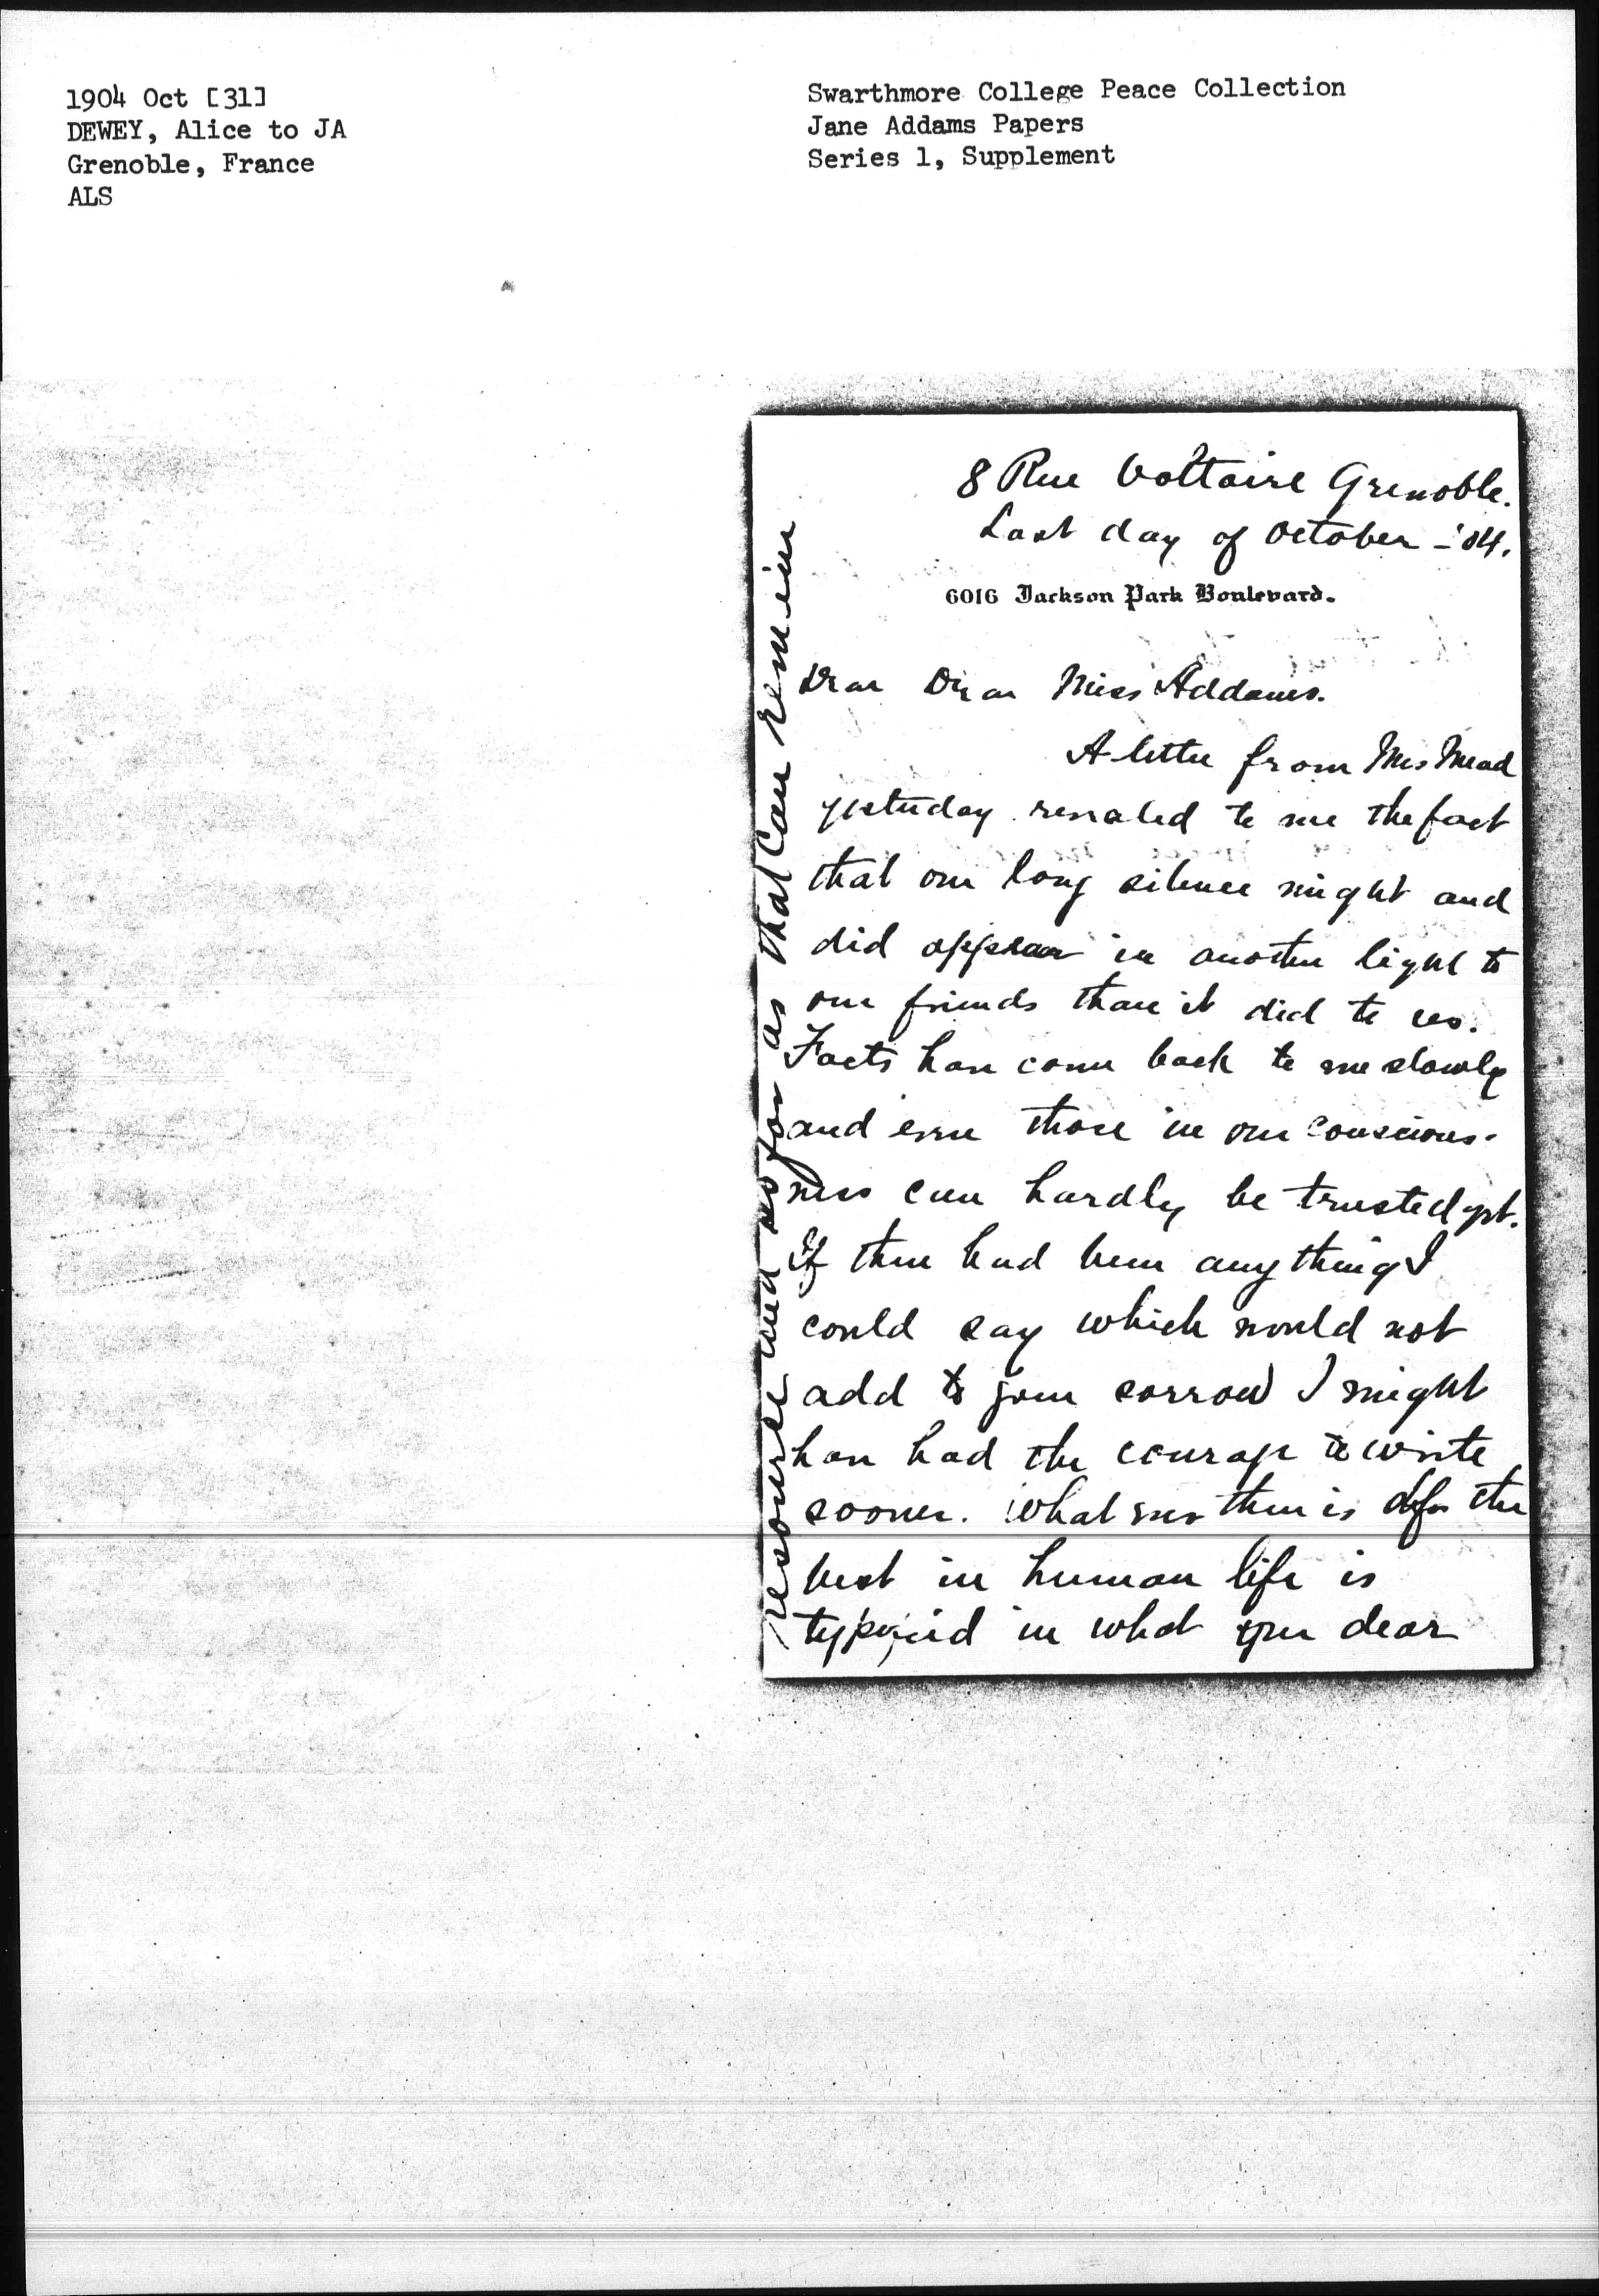 1904 Oct [31]
DEWEY, Alice to JA
Grenoble, France
ALS
Swarthmore College Peace Collection
Jane Addams Papers
Series 1, Supplement
8 Rue Voltaire Grenoble.
Last day of October - '04.
6016 Jackson Park Boulevard.
Dear Dear Miss Addams.
A letter from Mrs Mead
yesterday revealed to me the fact
that our long silence might and
did appear in another light to
our friends than it did to us.
Facts have come back to me slowly
and even those in our conscious-
ness can hardly be trusted yet.
If there had been anything I
could say which would not
add to your sorrow I might
have had the courage to write
sooner. What ever there is of the
best in human life is
typified in what you dear
resource and so far as that can remain